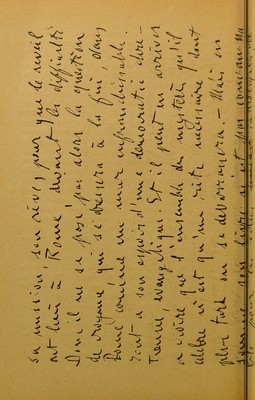 sa mission, son rêve, pour que le réveil
ait lieu à Rome devant la difficulté
Donc il ne se pose pas alors la question
de croyance qui se dressera à la fin, dans
Rome comme un mur infranchissable
tout à son espoir d'une démocratie chré-
tienne, évangélique. Et il peut en arriver
à croire que l'ensemble de mystères qu'il
célèbre n'est qu'un rite nécessaire dont
plus tard on se débarrassera. – Mais en
somme son livre n'est pas